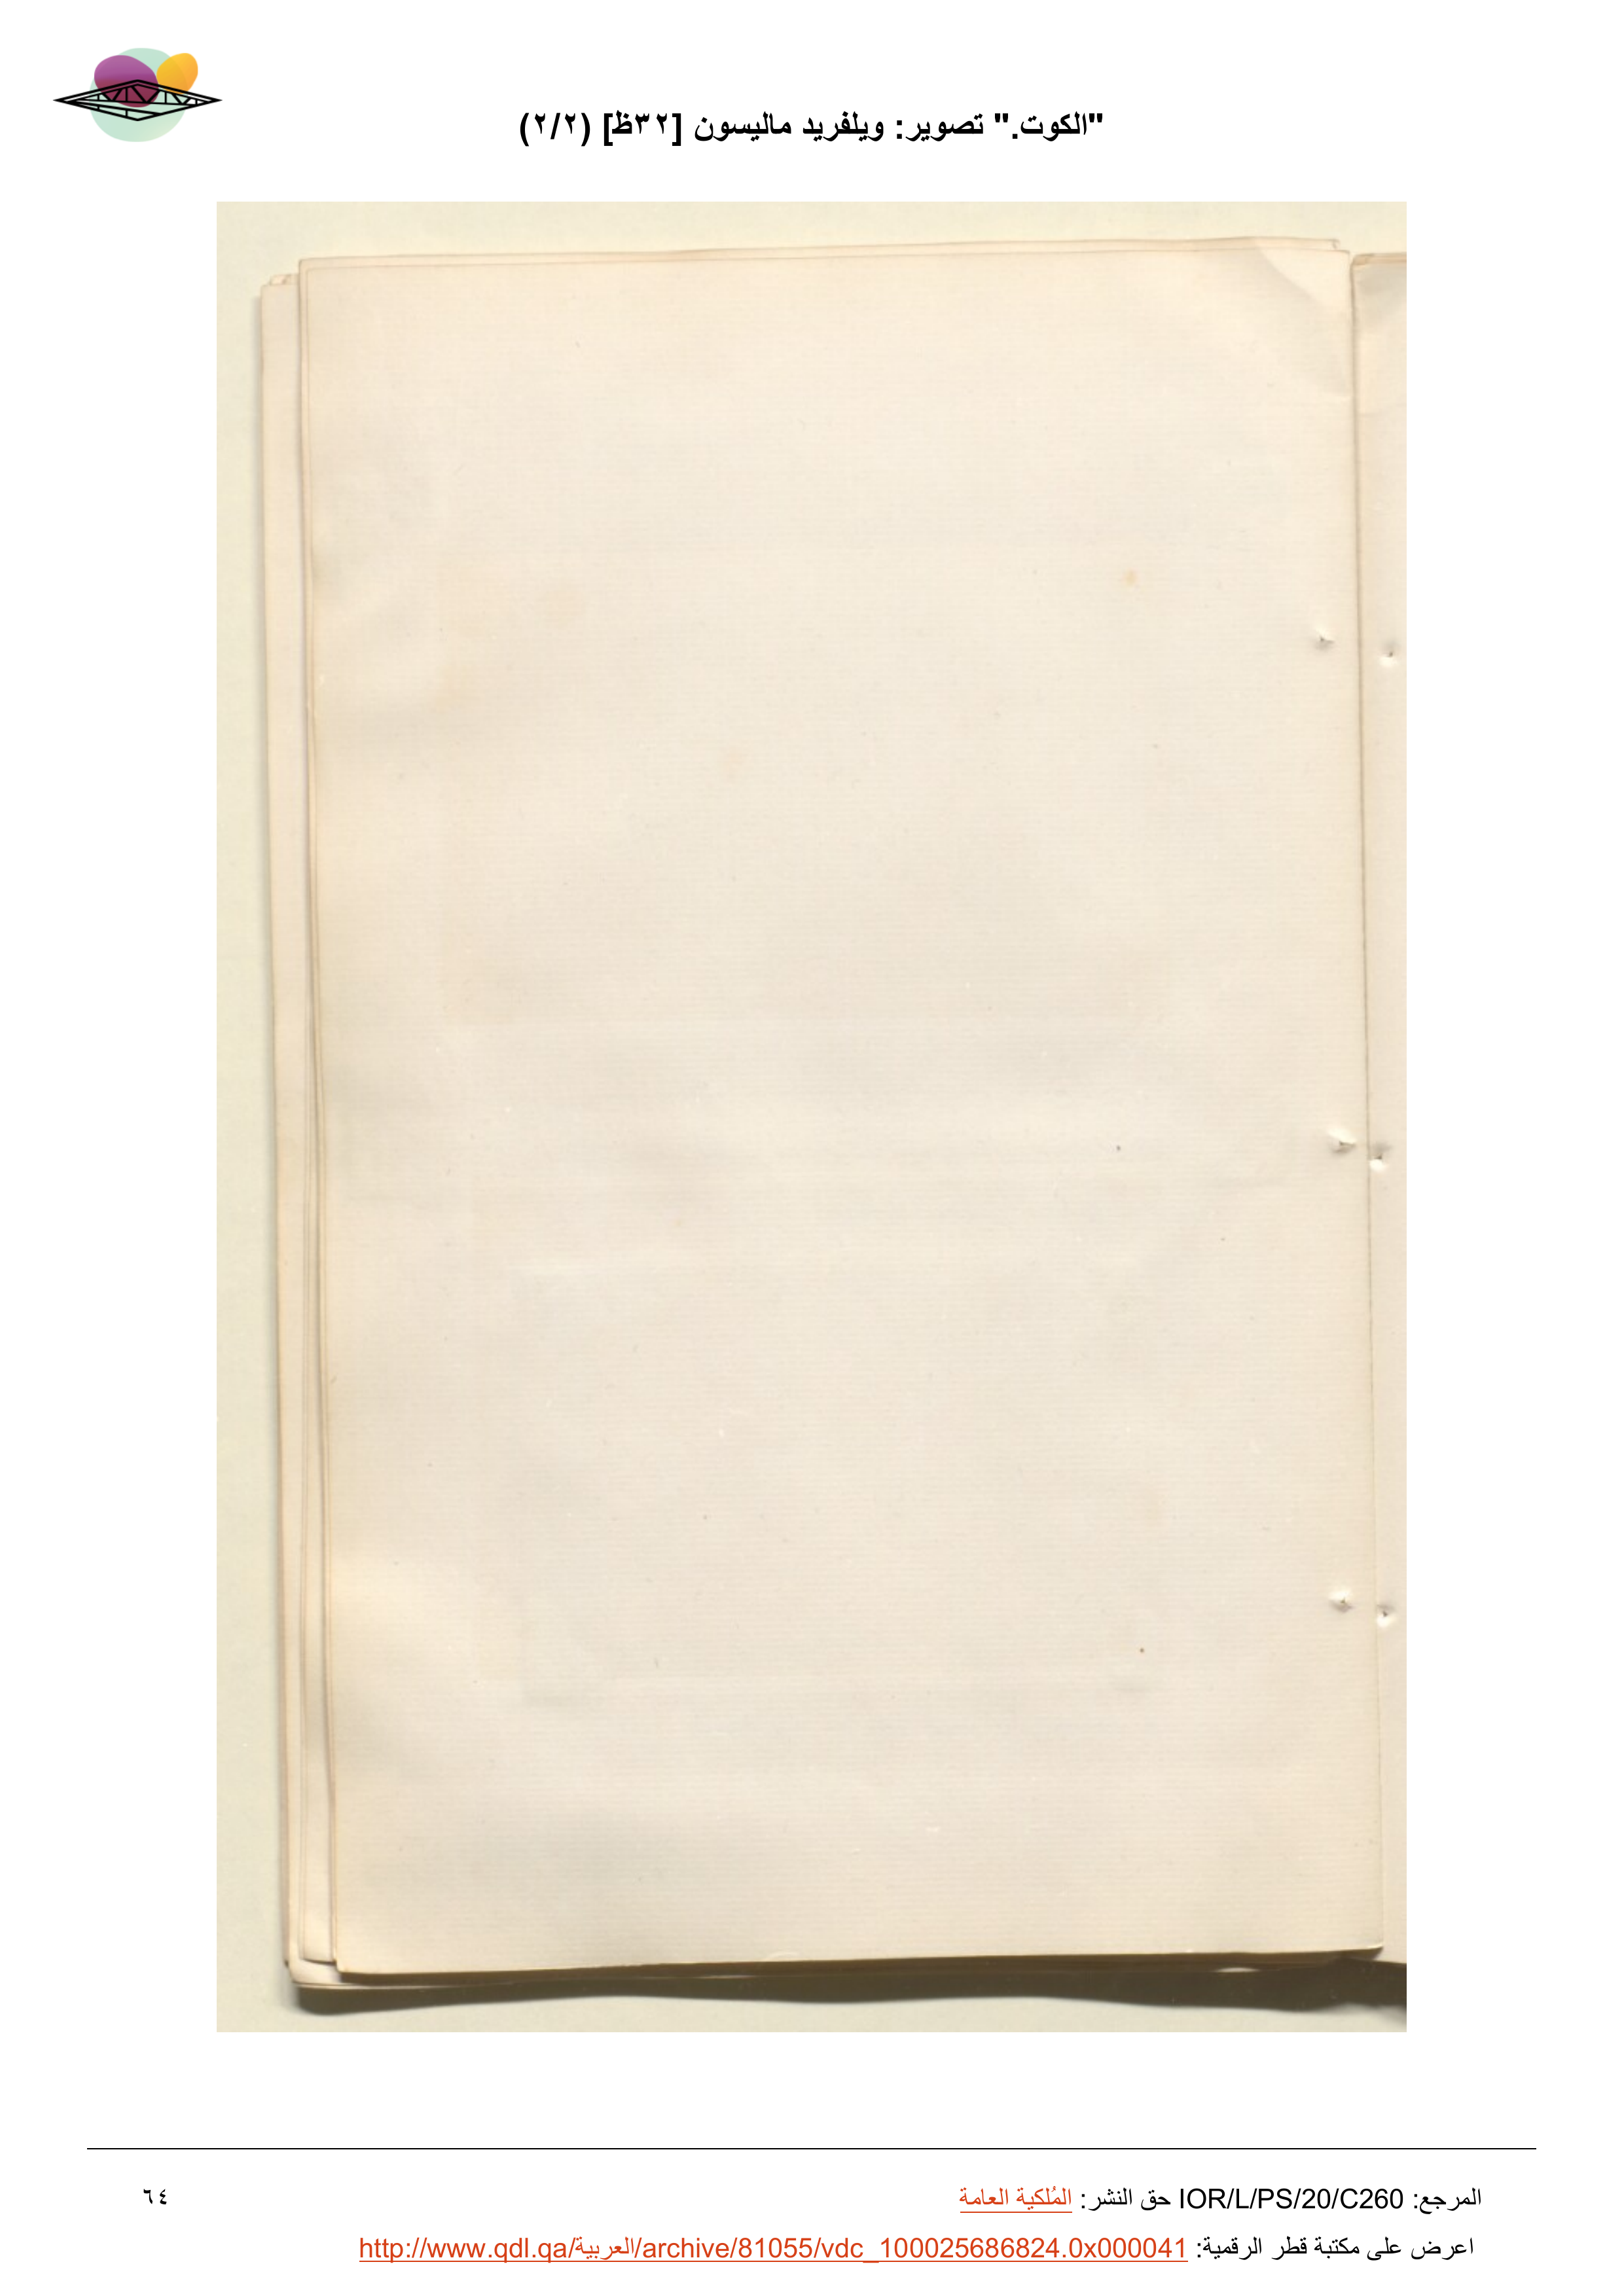 "الكوت." تصوير: ويلفريد ماليسون [٣٢ظ] (٢/٢)
المرجع: IOR/L/PS/20/C260 حق النشر: المُلكية العامة
٦٤
اعرض على مكتبة قطر الرقمية: http://www.qdl.qa/العربية/archive/81055/vdc_100025686824.0x000041